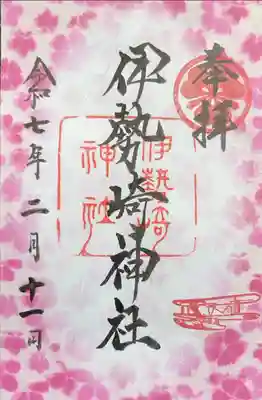 奉拝
伊勢崎神社
伊勢崎神社
令和七年二月十一日